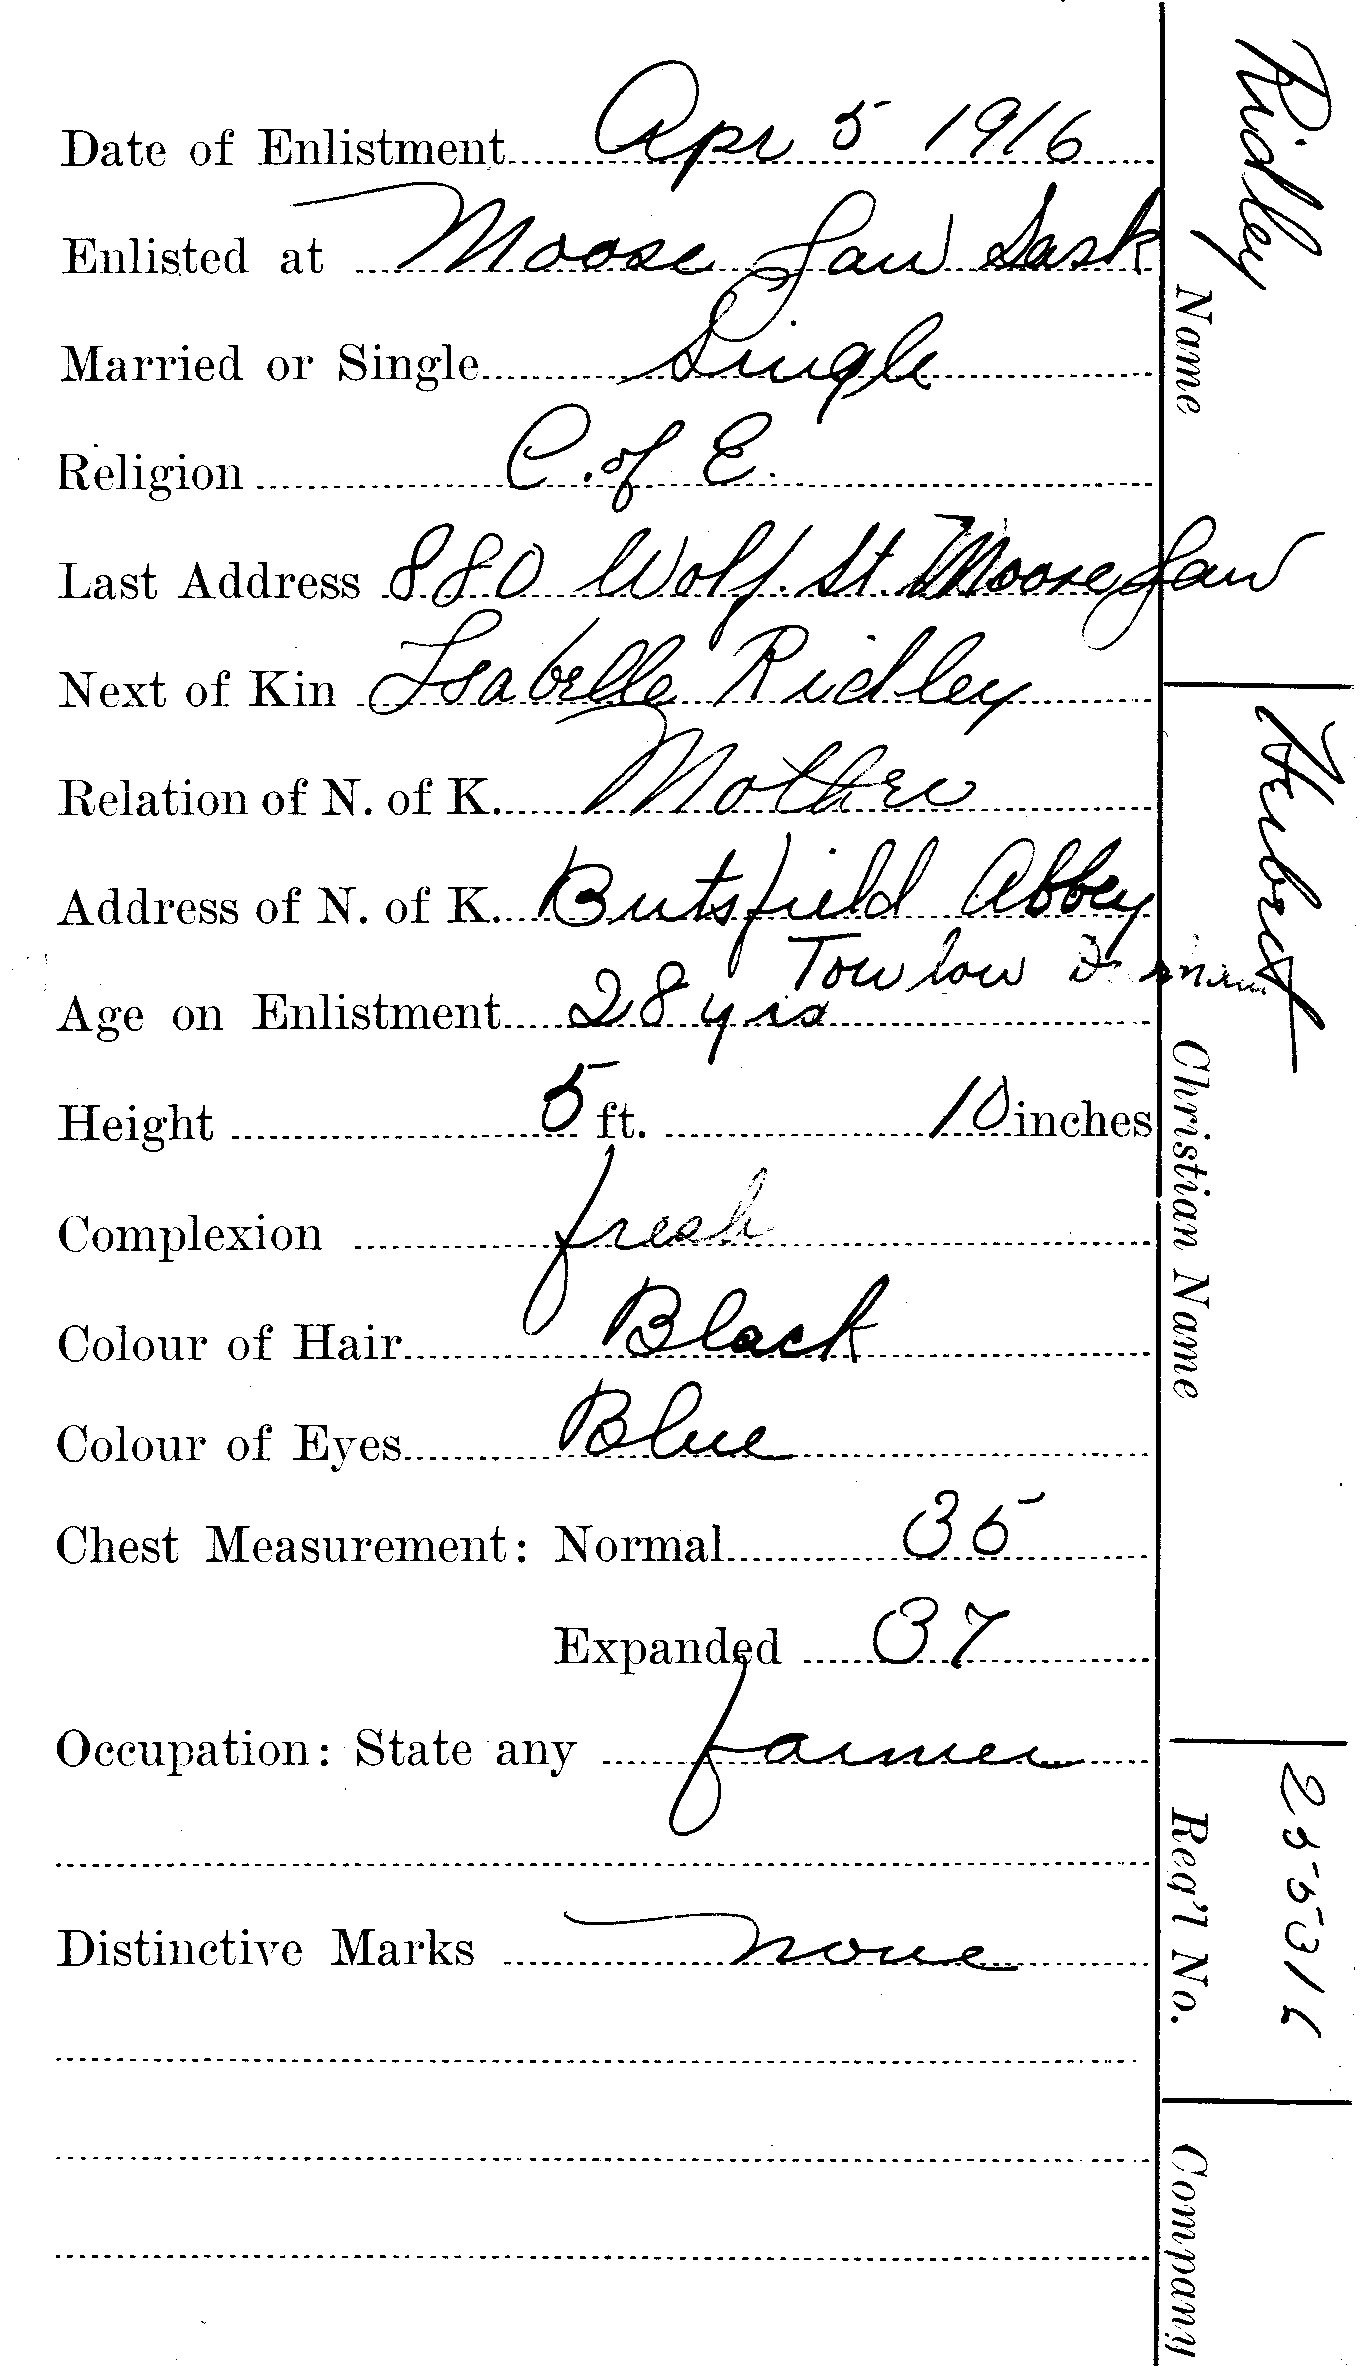 Date of Enlistment Apr 5 1916
Enlisted at Moose Jaw Sask
Married or Single Single
Religion C. of E.
Last Address 880 Wolf. St. Moose Jaw
Next of Kin Isabella Ridley
Relation of N. of K. Mother
Address of N. of K. Butsfield Abbey
Tow low
Age on Enlistment 28 yrs
Height 5 ft. 10 inches
Complexion fresh
Colour of Hair Black
Colour of Eyes Blue
Chest Measurement: Normal 35
Expanded 37
Occupation: State any farmer
Distinctive Marks none
Ridley
Name
Herbert
Christian Name
Reg'l No.
Company